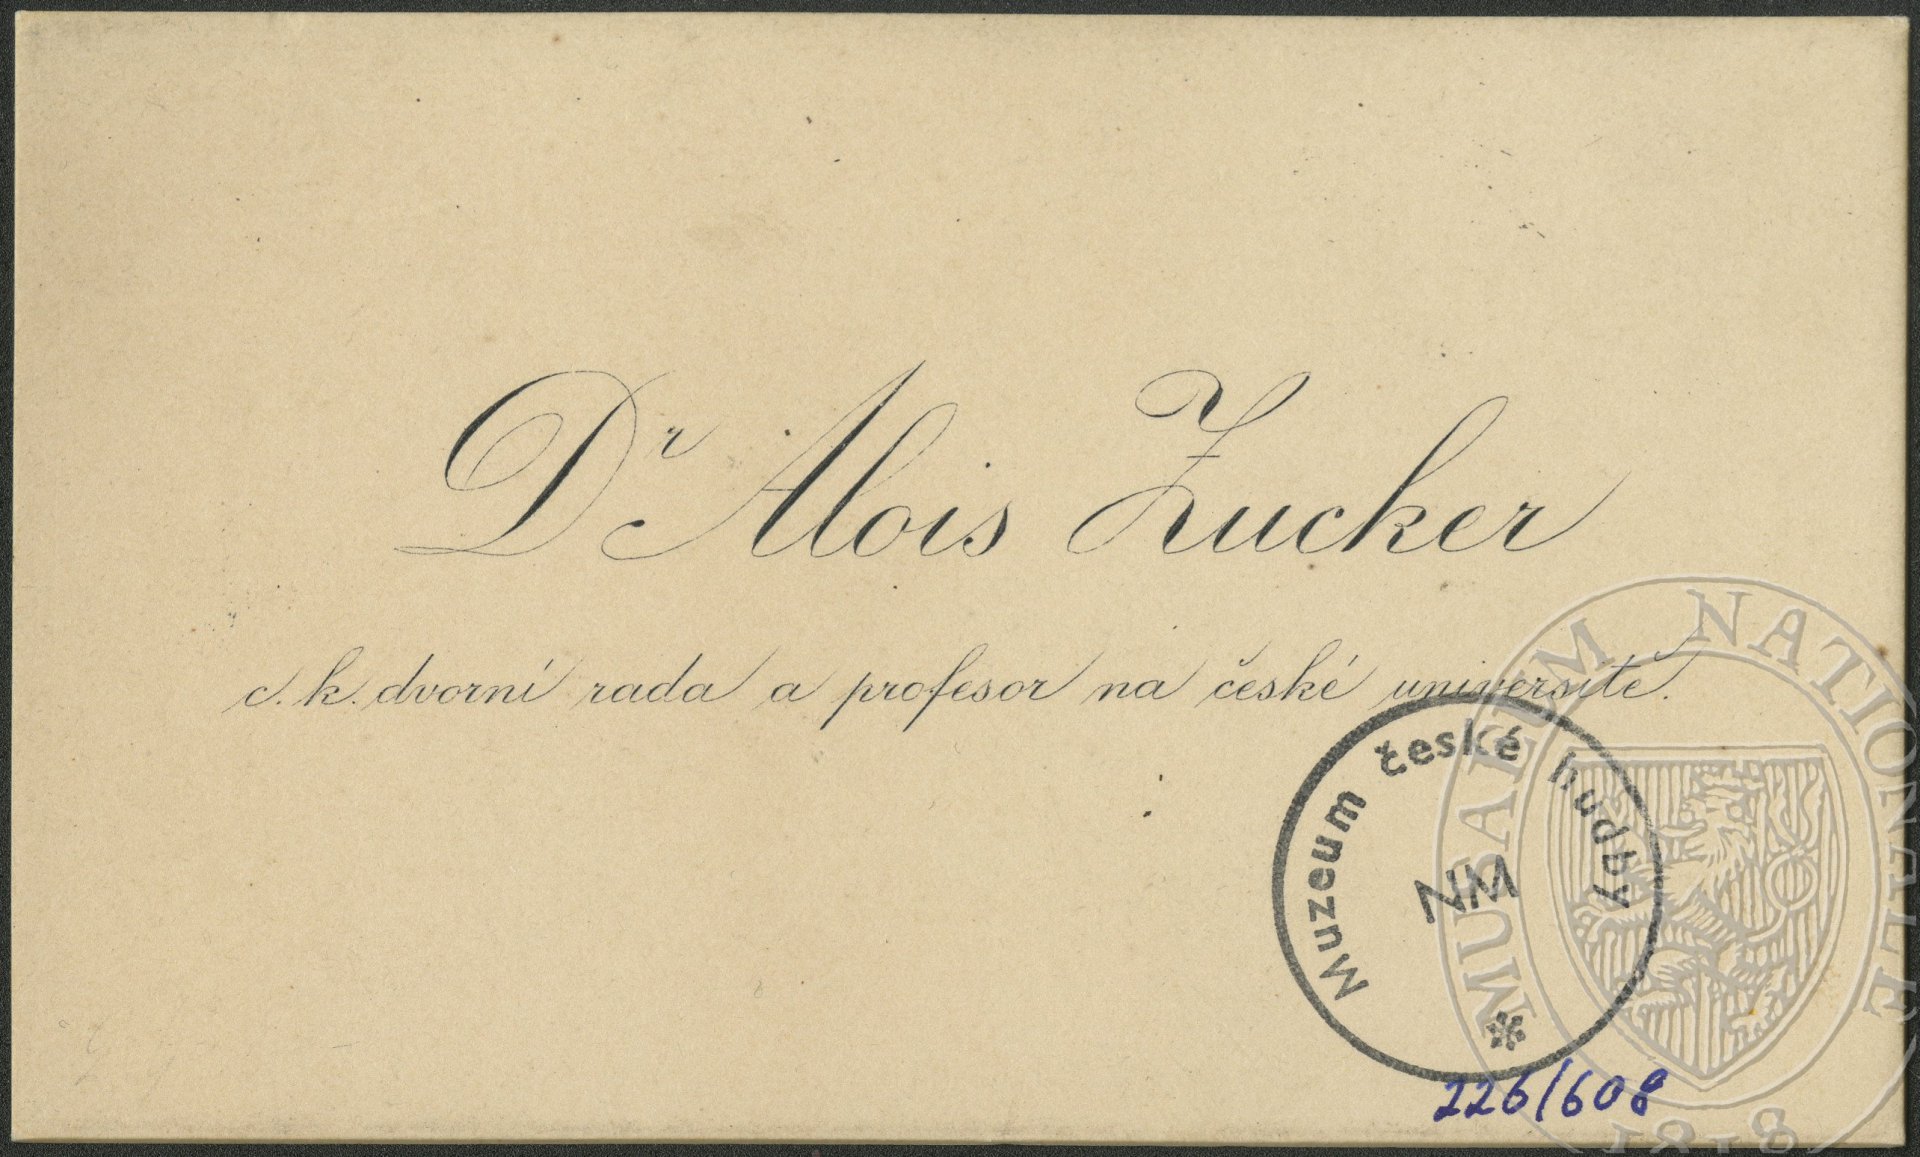 Dr Alois Zucker
c. k. dvorní rada a profesor na české universitě.
Muzeum české hudby
NM
226/608
MUSAEUM NATIONALE
1818